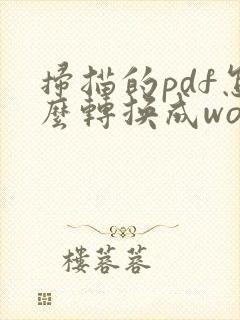 掃描的pdf怎
麼轉換成wo
樓蓉蓉